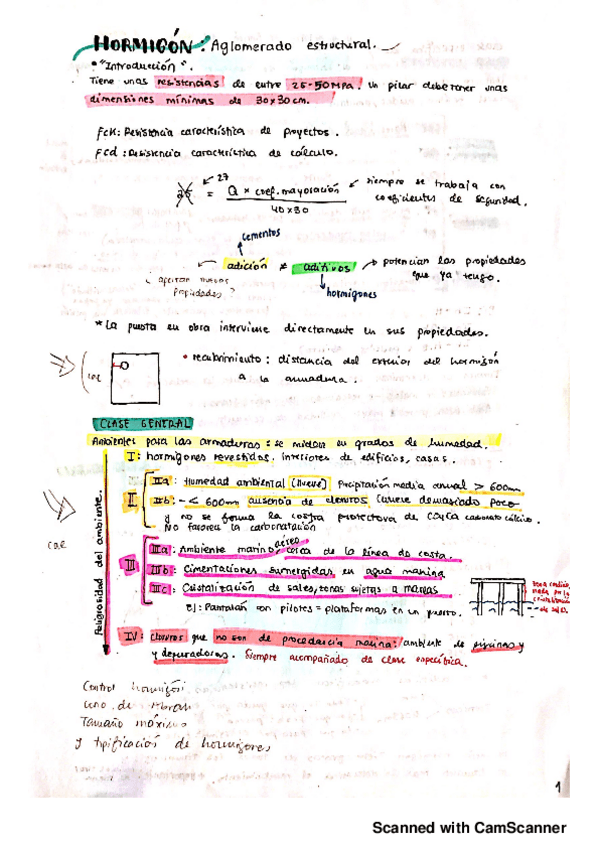 HORMIGÓN: Aglomerado estructural.
"Introducción".
Tiene unas resistencias de entre 25-50MPa. Un pilar debe tener unas
dimensiones mínimas de 30x30cm.
fck: Resistencia característica de proyectos.
fcd: Resistencia característica de cálculo.
27
= Q x coef. mayoración
40x30
siempre se trabaja con
coeficientes de seguridad.
cementos
adición ≠ aditivos → potencian las propiedades
que ya tengo.
¿ aportan nuevas
propiedades ?
hormigones
*La puesta en obra interviene directamente en sus propiedades.
• recubrimiento: distancia del exterior del hormigón
a la armadura.
cae
CLASE GENERAL
Ambientes para las armaduras: se miden en grados de humedad.
I: hormigones revestidos. interiores de edificios, casas.
II
IIa: Humedad ambiental (llueve) Precipitación media anual > 600mm
IIb: - < 600mm ausencia de cloruros llueve demasiado poco
y no se forma la costra protectora de CO3Ca carbonato cálcico.
No favorea la carbonatación
cae
Peligrosidad del ambiente.
III
aéreo
IIIa: Ambiente marino, cerca de la línea de costa.
IIIb: Cimentaciones sumergidas en agua marina
IIIc: Cristalización de sales, zonas sujetas a mareas
Ej: Pantalán con pilotes = plataformas en un puerto.
IV: cloruros que no son de procedencia marina: ambiente de piscinas y
y depuradoras. Siempre acompañado de clase específica.
Control hormigón
Tamaño máximo
y tipificación de hormigones
1
Scanned with CamScanner